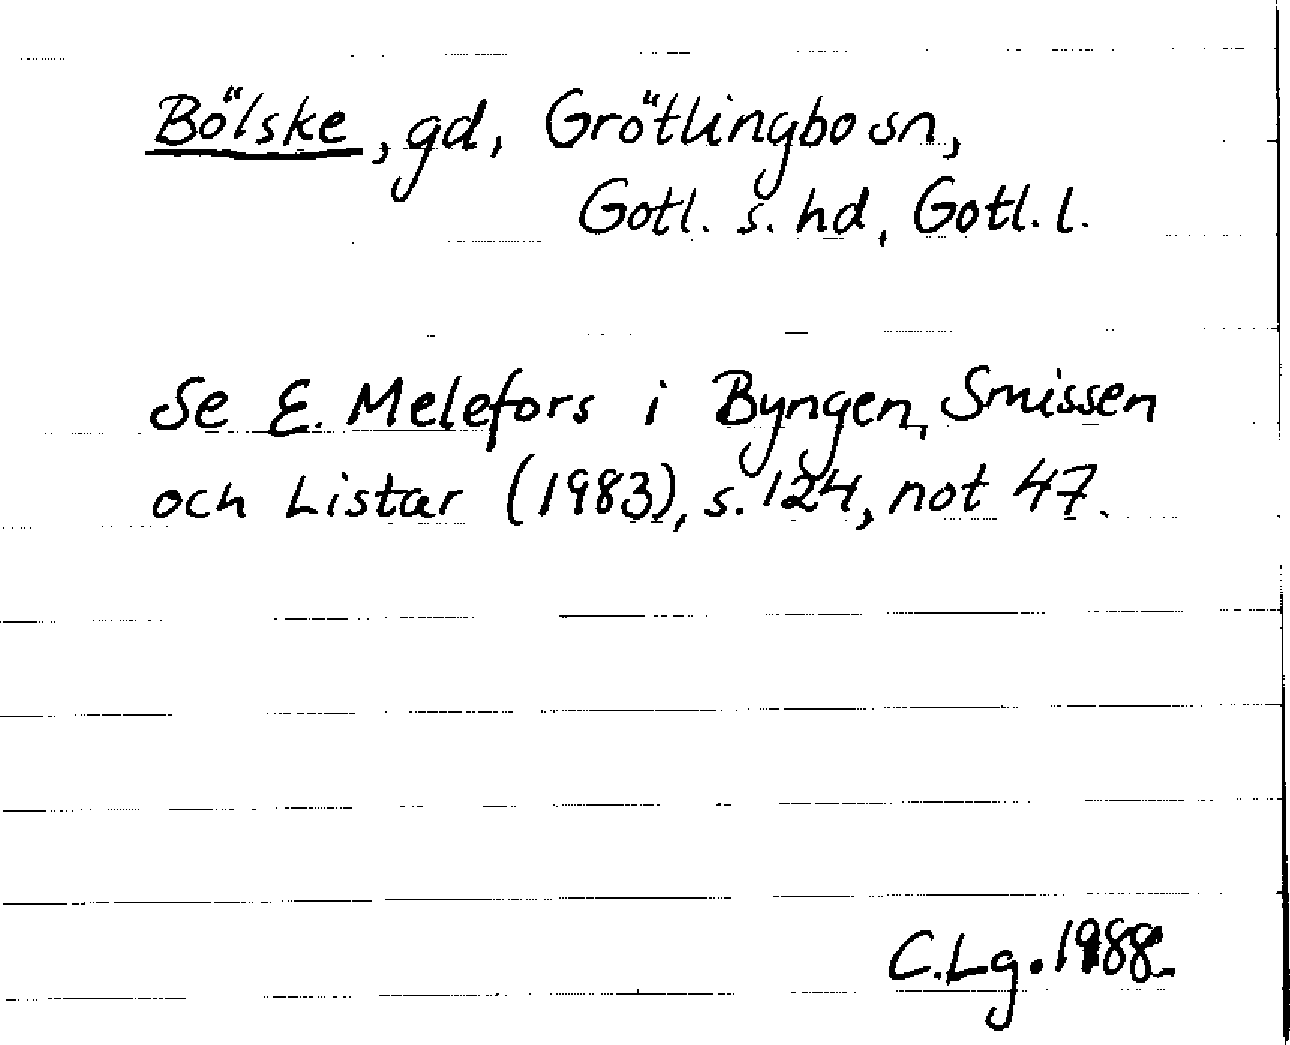 Bölske, gd, Grötlingbo sn,
Gotl. s. hd, Gotl. l.
Se E. Melefors i Byngen, Smissen
och Listar (1983), s. 124, not 47.
C. Lg. 1988.